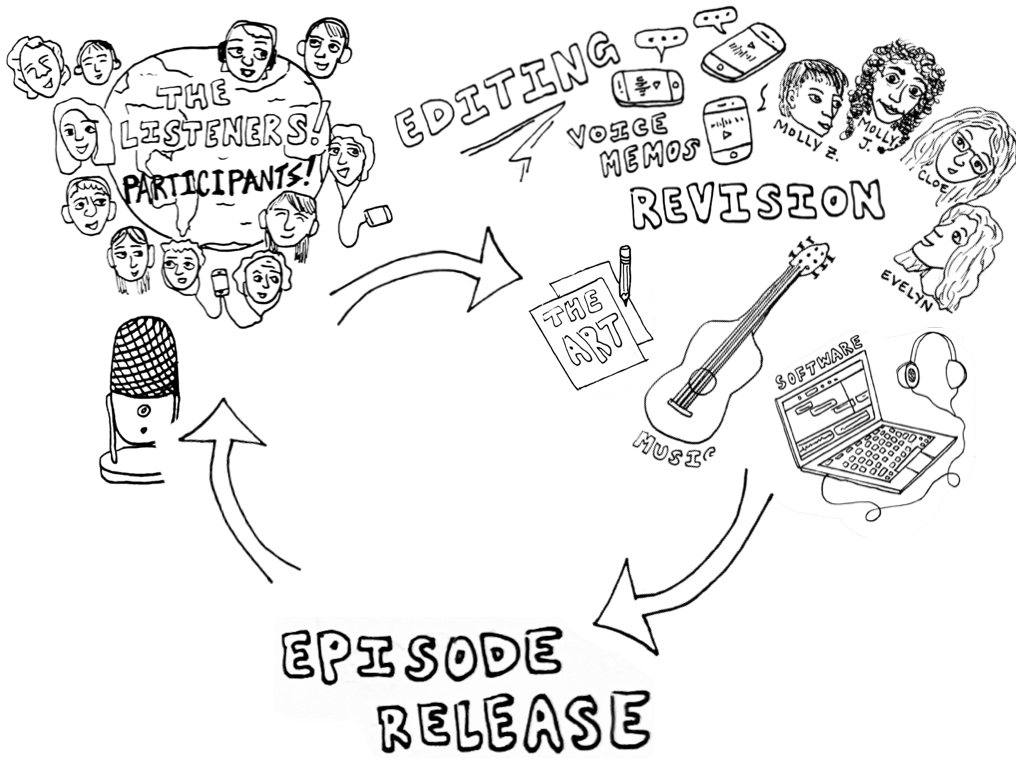 THE
LISTENERS!
PARTICIPANTS!
EDITING
VOICE
MEMOS
MOLLY Z.
MOLLY
J.
CLOE
EVELYN
REVISION
THE
ART
MUSIC
SOFTWARE
EPISODE
RELEASE